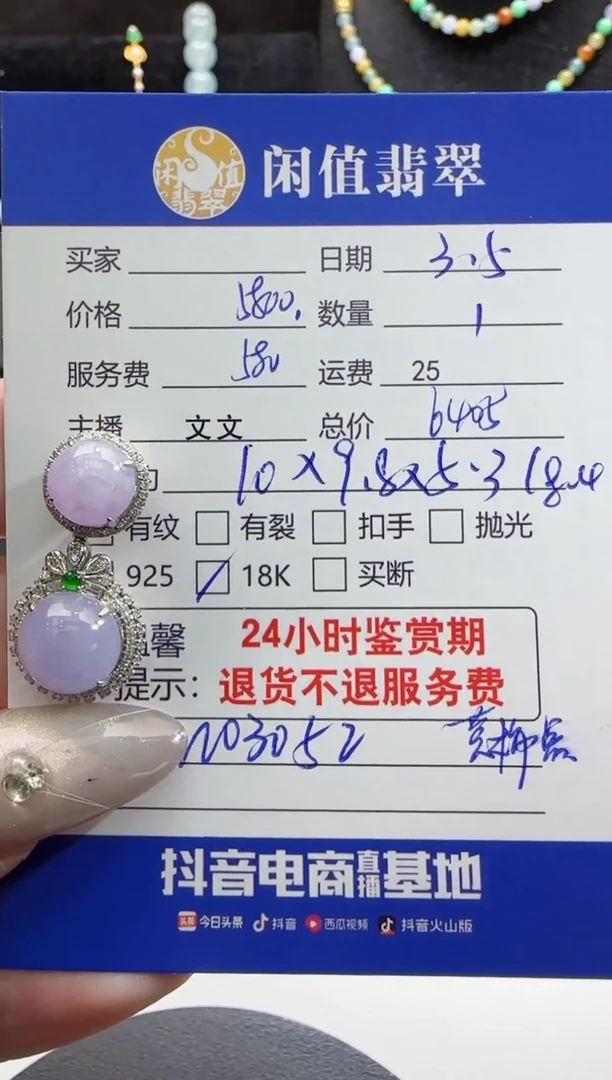 闲值翡翠
闲值翡翠
买家 日期 3.5
价格 5800. 数量 1
服务费 580 运费 25
主播 文文 总价 6405
10×9.8×5.3 18.4
有纹 有裂 扣手 抛光
925 18K 买断
温馨 24小时鉴赏期
提示: 退货不退服务费
03052
抖音电商直播基地
头条 今日头条 抖音 西瓜视频 抖音火山版